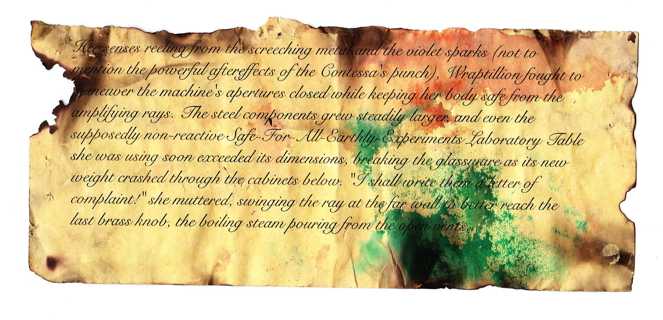 Her senses reeling from the screeching metal and the violet sparks (not to
mention the powerful aftereffects of the Contessa's punch), Wraptillion fought to
maneuver the machine's apertures closed while keeping her body safe from the
amplifying rays. The steel components grew steadily larger, and even the
supposedly non-reactive Safe-For-All-Earthly-Experiments Laboratory Table
she was using soon exceeded its dimensions, breaking the glassware as its new
weight crashed through the cabinets below. "I shall write them a letter of
complaint!" she muttered, swinging the ray at the far wall to better reach the
last brass knob, the boiling steam pouring from the open vents.